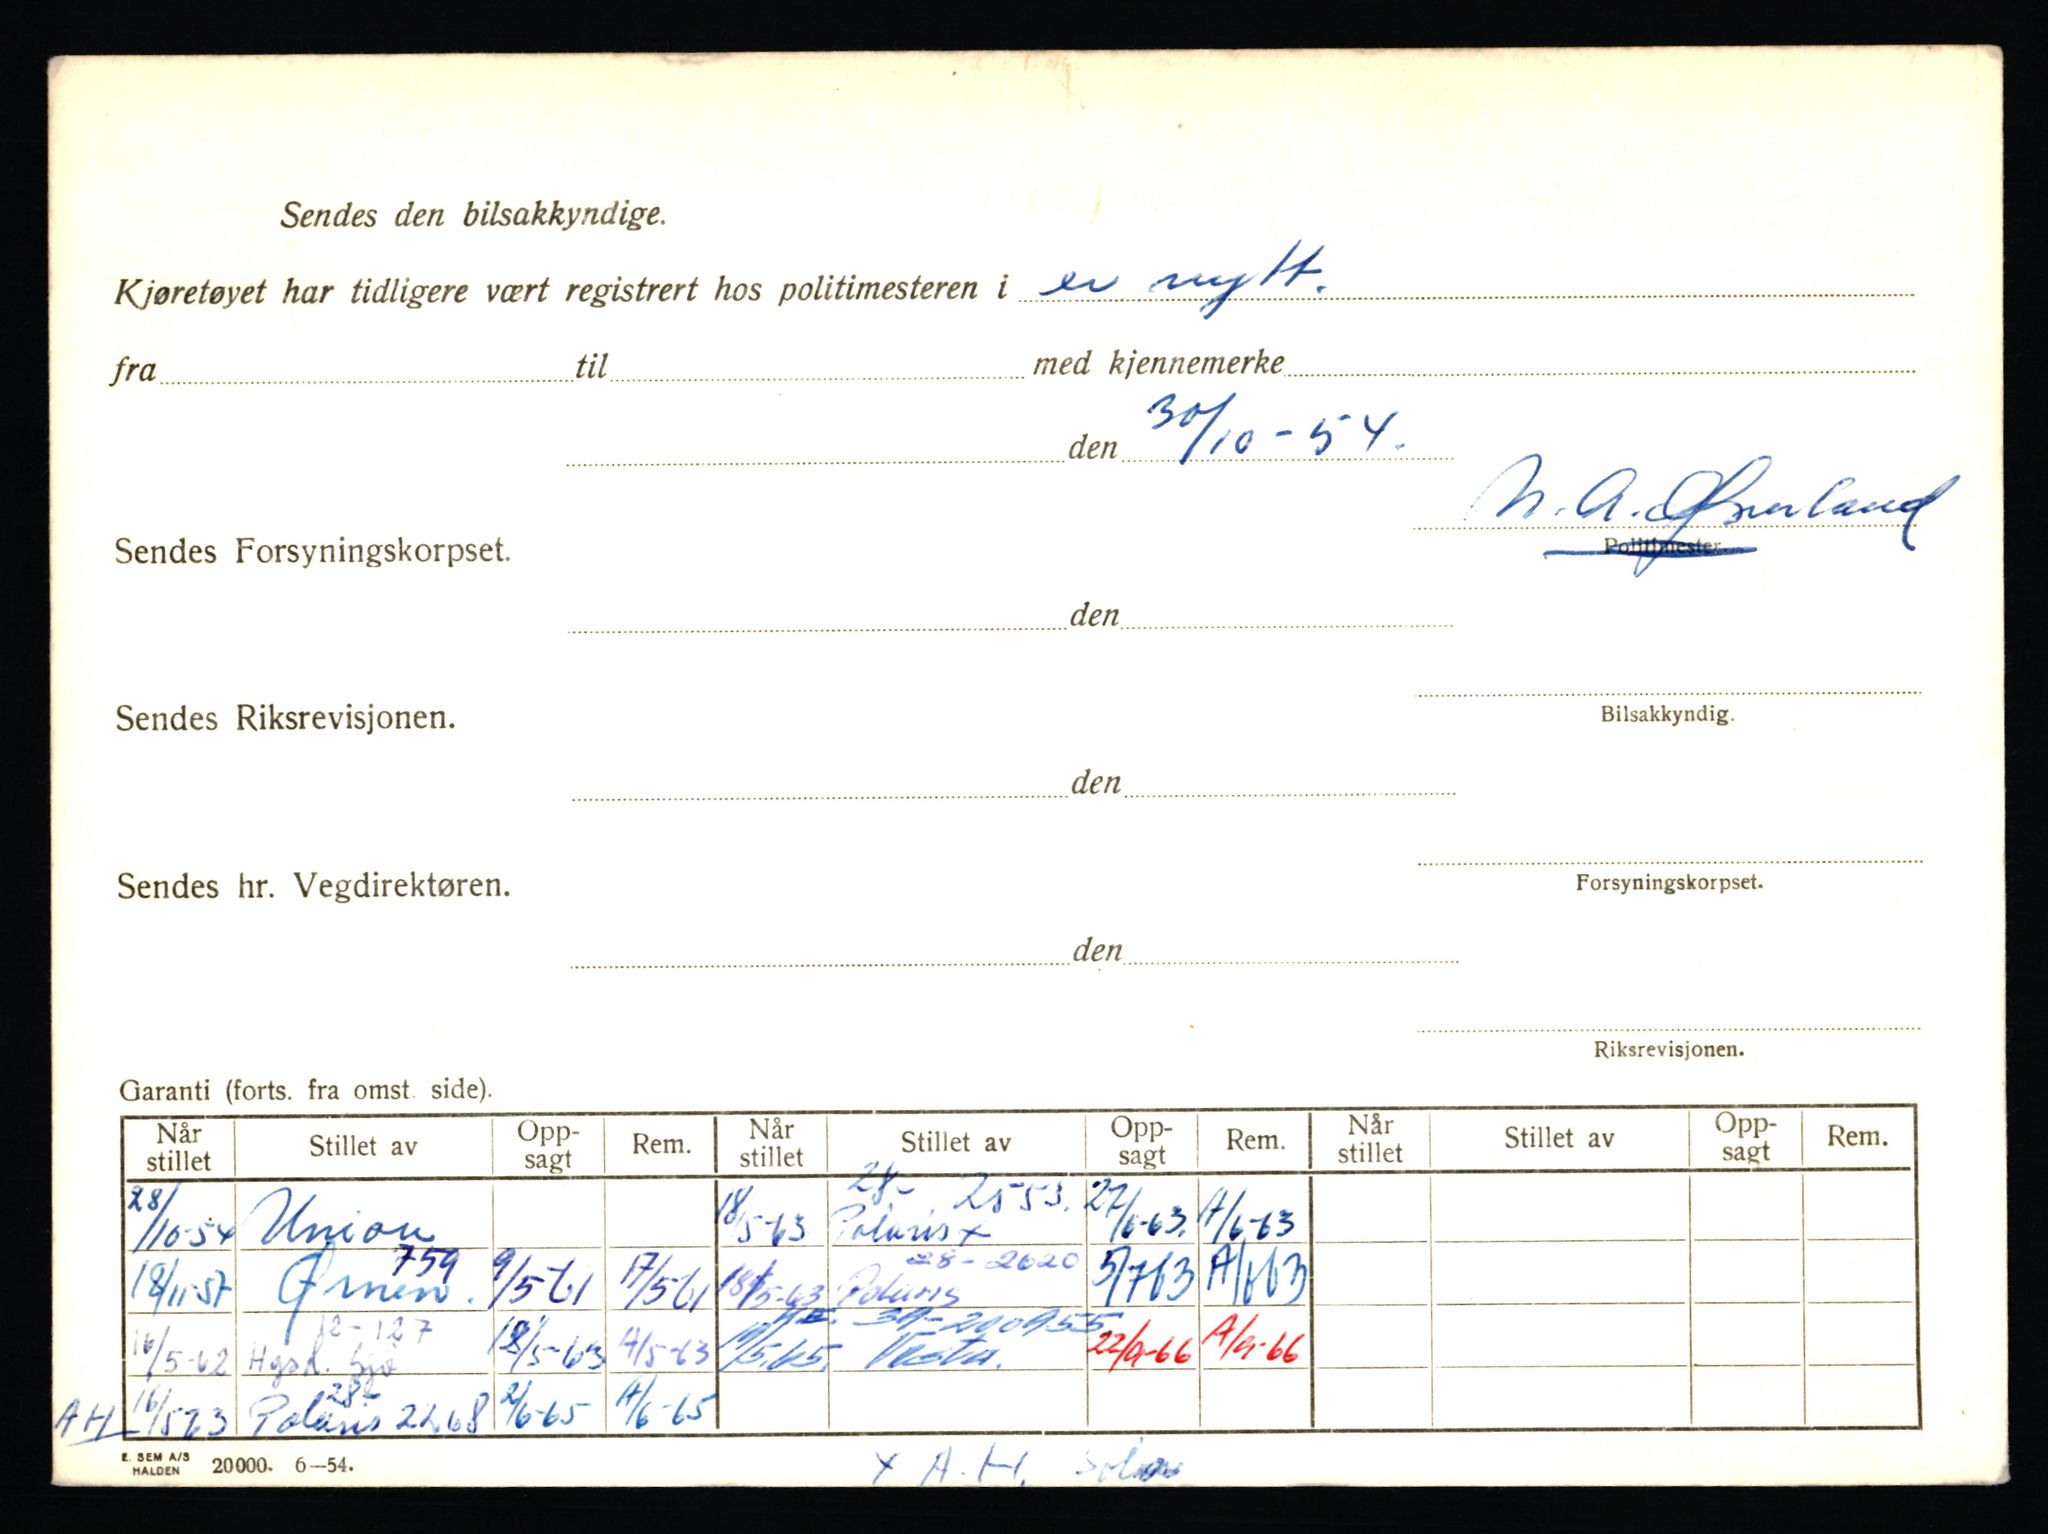 Sendes den bilsakkyndige.
Kjøretøyet har tidligere vært registrert hos politimesteren i er nytt.
fra til med kjennemerke
den 30/10-54.
Sendes Forsyningskorpset.
Politimester.
den
Sendes Riksrevisjonen.
Bilsakkyndig.
den
Sendes hr. Vegdirektøren.
Forsyningskorpset.
den
Riksrevisjonen.
Garanti (forts. fra omst. side).
Når stillet Stillet av Opp-sagt Rem. Når stillet Stillet av Opp-sagt Rem. Når stillet Stillet av Opp-sagt Rem.
28/10-54 Union 18/5-63 28-2553. Polaris x 27/6-63. A/6-63
18/11-57 Ørnen. 759 9/5-61 17/5 61 18/5-63 28-2620 Polaris 5/7 63 A/6 63
16/5-62 12-127 Hgsd. Sjø 18/5-63 A/5-63 11/5.65. Vesta. 22/9-66 A/9-66
AH 16/5 63 Polaris 28-2268 2/6-65 A/6-65
E. SEM A/S HALDEN 20000. 6—54.
x A.H.